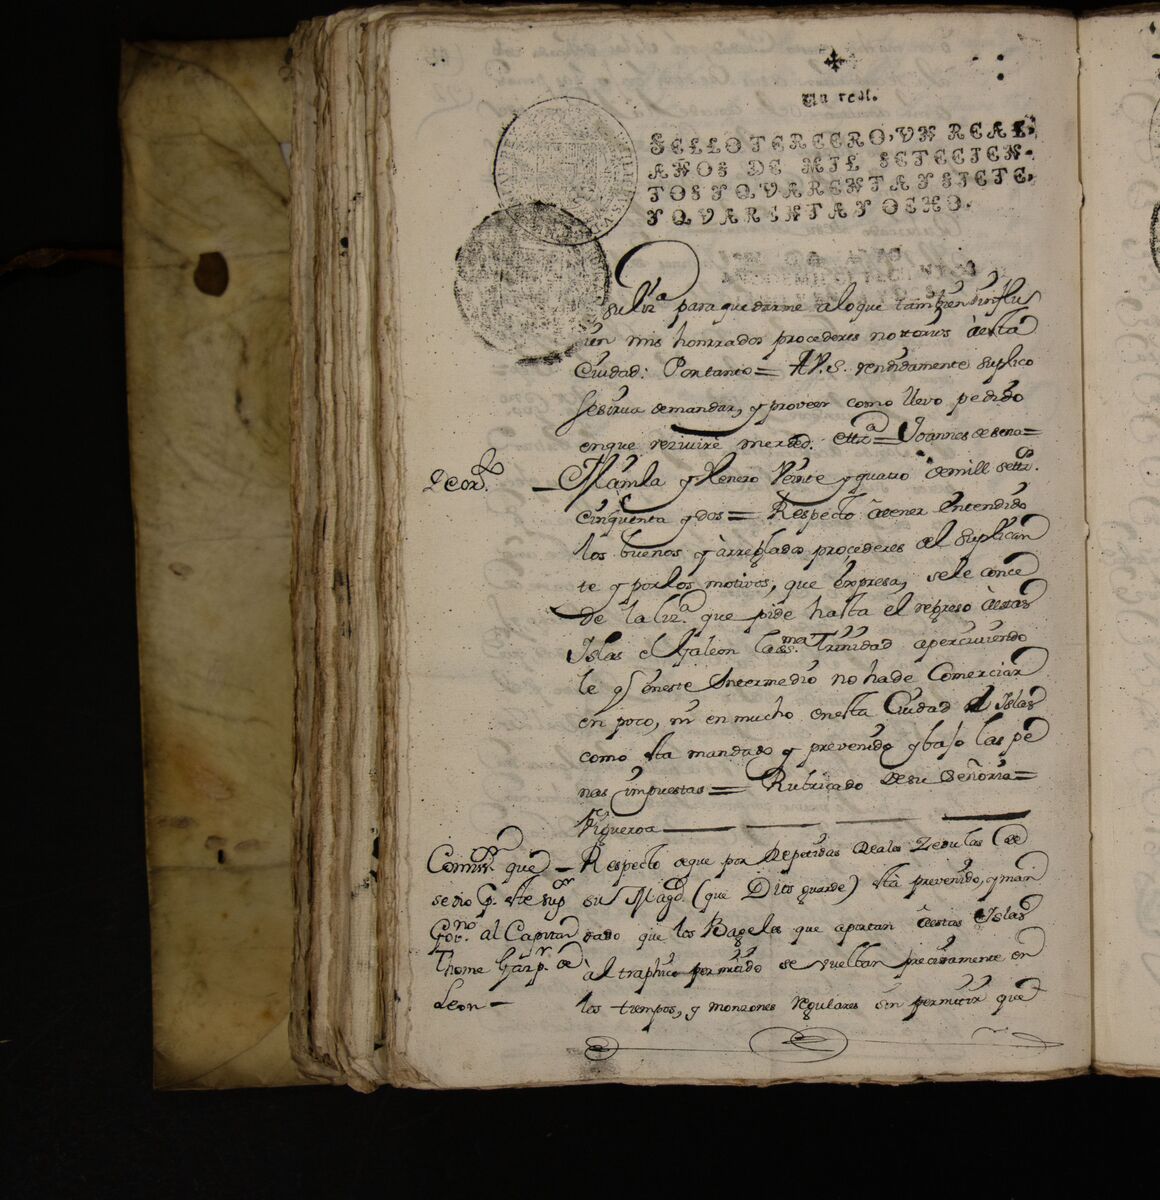 Un real.
SELLO TERCERO, VN REAL,
AÑOS DE MIL SETECIEN-
TOS Y QVARENTA Y SIETE,
Y QVARENTA Y OCHO.
su liz.a para quedarme a lo que tambien
en mis honrrados procederes notorios à esta
Ciudad: Portanto = A V. S. rendidamente suplico
se sirva de mandar, y proveer como llevo pedido
en que reziviré merced. ettr.a = Joannes de sena =
Decor.to
Manila y Henero Veinte y quatro de mill settr.
cinquenta y dos = Respecto à tener entendido
los buenos y àrreglados procederes del suplican
te y por los motivos, que expresa, se le conce
de la liz.a que pide hasta el regreso à estas
Islas el Galeon la SS.ma Trinidad aperciviendo
le q en este Intermedio no ha de Comerciar
en poco, ni en mucho en esta Ciudad Islas
como sta mandado y prevenido y bajo las pe
nas impuestas = Rubricado de su señoria =
Figueroa
Comiss.n que
se dio p.r ste sup.or
Gov.no al Capitan
Thome Gasp.r de
Leon -
Respecto de que por Repetidas Reales Zedulas de
su Mag.d (que Dios guarde) stà prevenido, y man
dado que los Bageles que aportan à estas Islas
àl traphico permitido se vueltan precisamente en
los tiempos, y monzones regulares sin permitir que